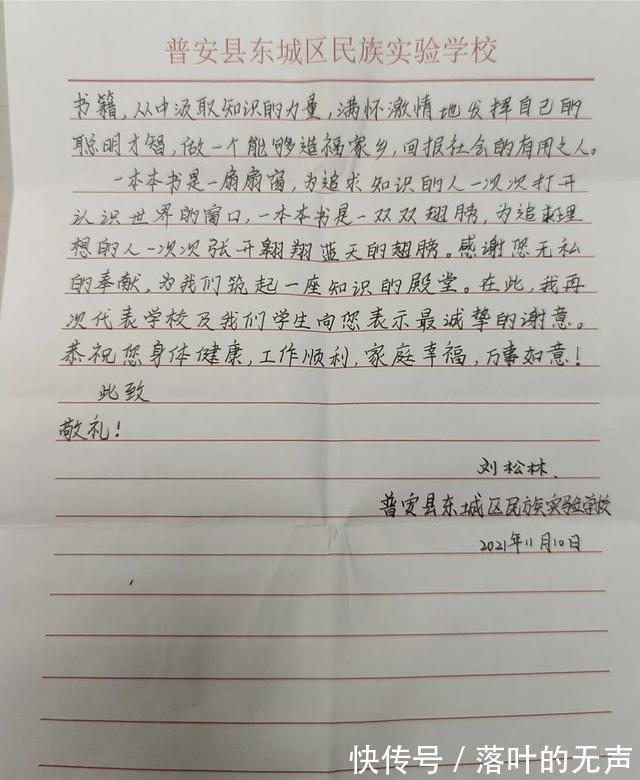 普安县东城区民族实验学校
书籍,从中汲取知识的力量,满怀激情地发挥自己的
聪明才智,做一个能够造福家乡,回报社会的有用之人。
一本本书是一扇扇窗,为追求知识的人一次次打开
认识世界的窗口,一本本书是一双双翅膀,为追理
想的人一次次张开翱翔蓝天的翅膀。感谢您无私
的奉献,为我们筑起一座知识的殿堂。在此,我再
次代表学校及我们学生向您表示最诚挚的谢意。
恭祝您身体健康,工作顺利,家庭幸福,万事如意!
此致
敬礼!
刘松林、
普安县东城区民族实验学校
2021年11月10日
快传号/落叶的无声